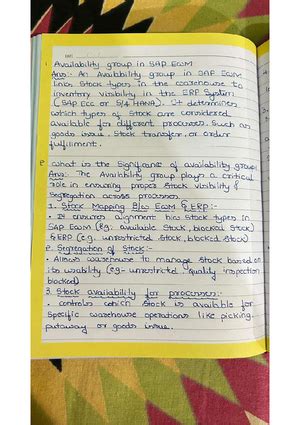 1. Availability group in SAP EWM
Ans:- An Availability group in SAP EWM
links Stock types in the warehouse to
inventory visibility in the ERP System
(SAP ECC or S/4 HANA). It determines
which types of Stock are considered
available for different processes. Such as
goods issue. Stock transfer, or order
fulfilment.
2. What is the Significance of availability group,
Ans: The Availability group plays a critical
role in ensuring proper Stock visibility &
Segregation across processes.
1. Stock Mapping B/w EWM & ERP:-
• It ensures alignment b/w Stock types in
SAP EWM (Eg: available Stock, blocked Stock)
& ERP (e.g. unrestricted Stock, blocked Stock)
2. Segregation of Stock:-
• Allows warehouse to manage Stock based on
its usability (eg- unrestricted, quality inspection
blocked)
3. Stock availability for processes:-
• controls which Stock is available for
Specific warehouse operations like picking,
putaway or goods issue.